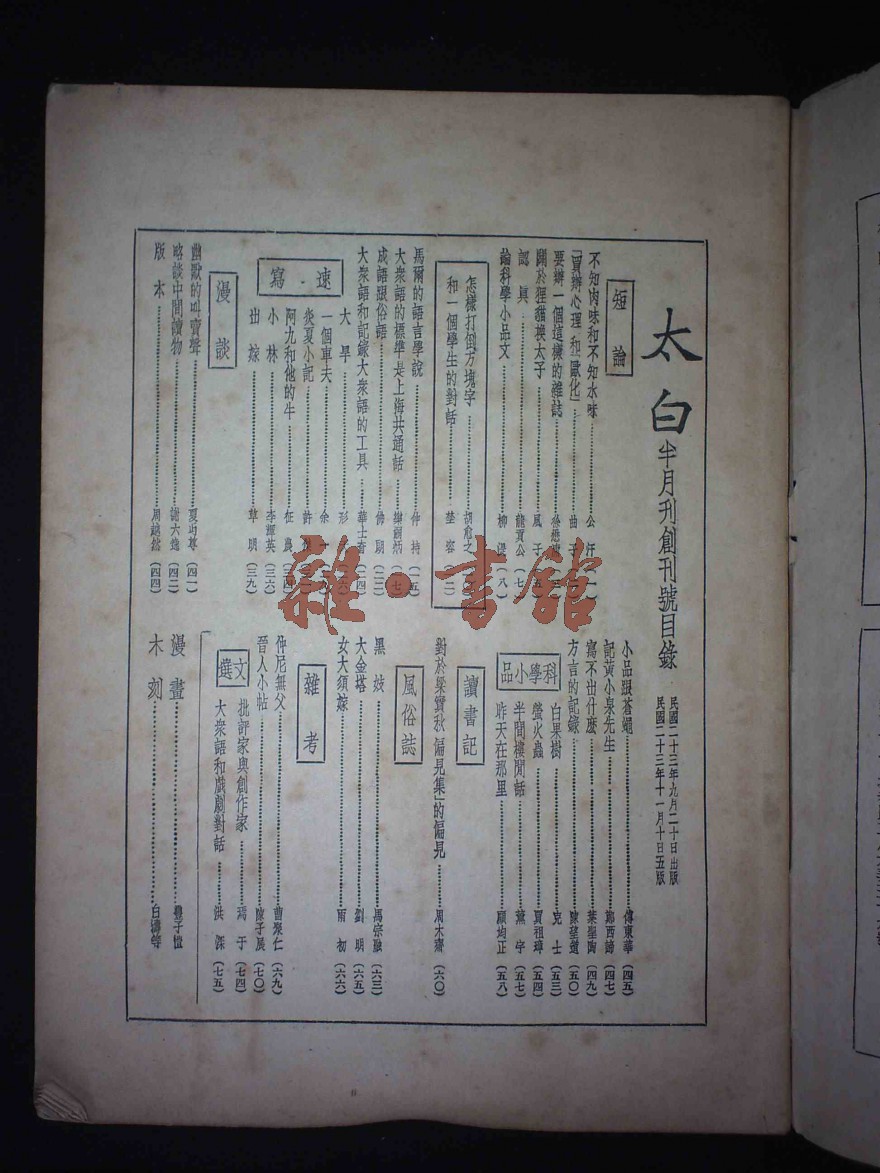 太白
半月刊創刊號目錄
民國二十三年九月二十日出版
民國二十三年十一月十日五版
短論
不知肉味和不知水味 公汗（一）
「買辦心理」和「歐化」 曲子
要辦一個這樣的雜誌
關於狸貓換太子 風子
認真 龍貢公（七）
論科學小品文 柳湜（八）
怎樣打倒方塊字 胡愈之
和一個學生的對話
馬爾的語言學說 仲持（一五）
大衆語的標準是上海共通話
成語跟俗語 佛朗（二三）
大衆語和記錄大衆語的工具 華士奇（二四）
速寫
大旱
一個車夫
炎夏小記
阿九和他的牛 征農
小林 李輝英（三六）
出嫁 草明（三九）
漫談
幽默的叫賣聲 夏丏尊（四一）
略談中間讀物 謝六逸（四二）
版本 周越然（四四）
小品跟蒼蠅 傅東華（四五）
記黃小泉先生 鄭西諦（四七）
寫不出什麼 葉聖陶（四九）
方言的記錄 陳望道（五〇）
科學小品
白果樹 克士（五三）
螢火蟲 賈祖璋（五四）
半間樓閒話 薰宇（五七）
昨天在那里 顧均正（五八）
讀書記
對於梁實秋「偏見集」的偏見 周木齋（六〇）
風俗誌
黑妓 馬宗融（六三）
大金塔 劉明（六五）
女大須嫁 雨初（六六）
雜考
仲尼無父 曹聚仁（六九）
晉人小帖 陳子展（七〇）
文選
批評家與創作家
大衆語和戲劇對話 洪深（七五）
漫畫 豐子愷
木刻 白濤等
雜·書館